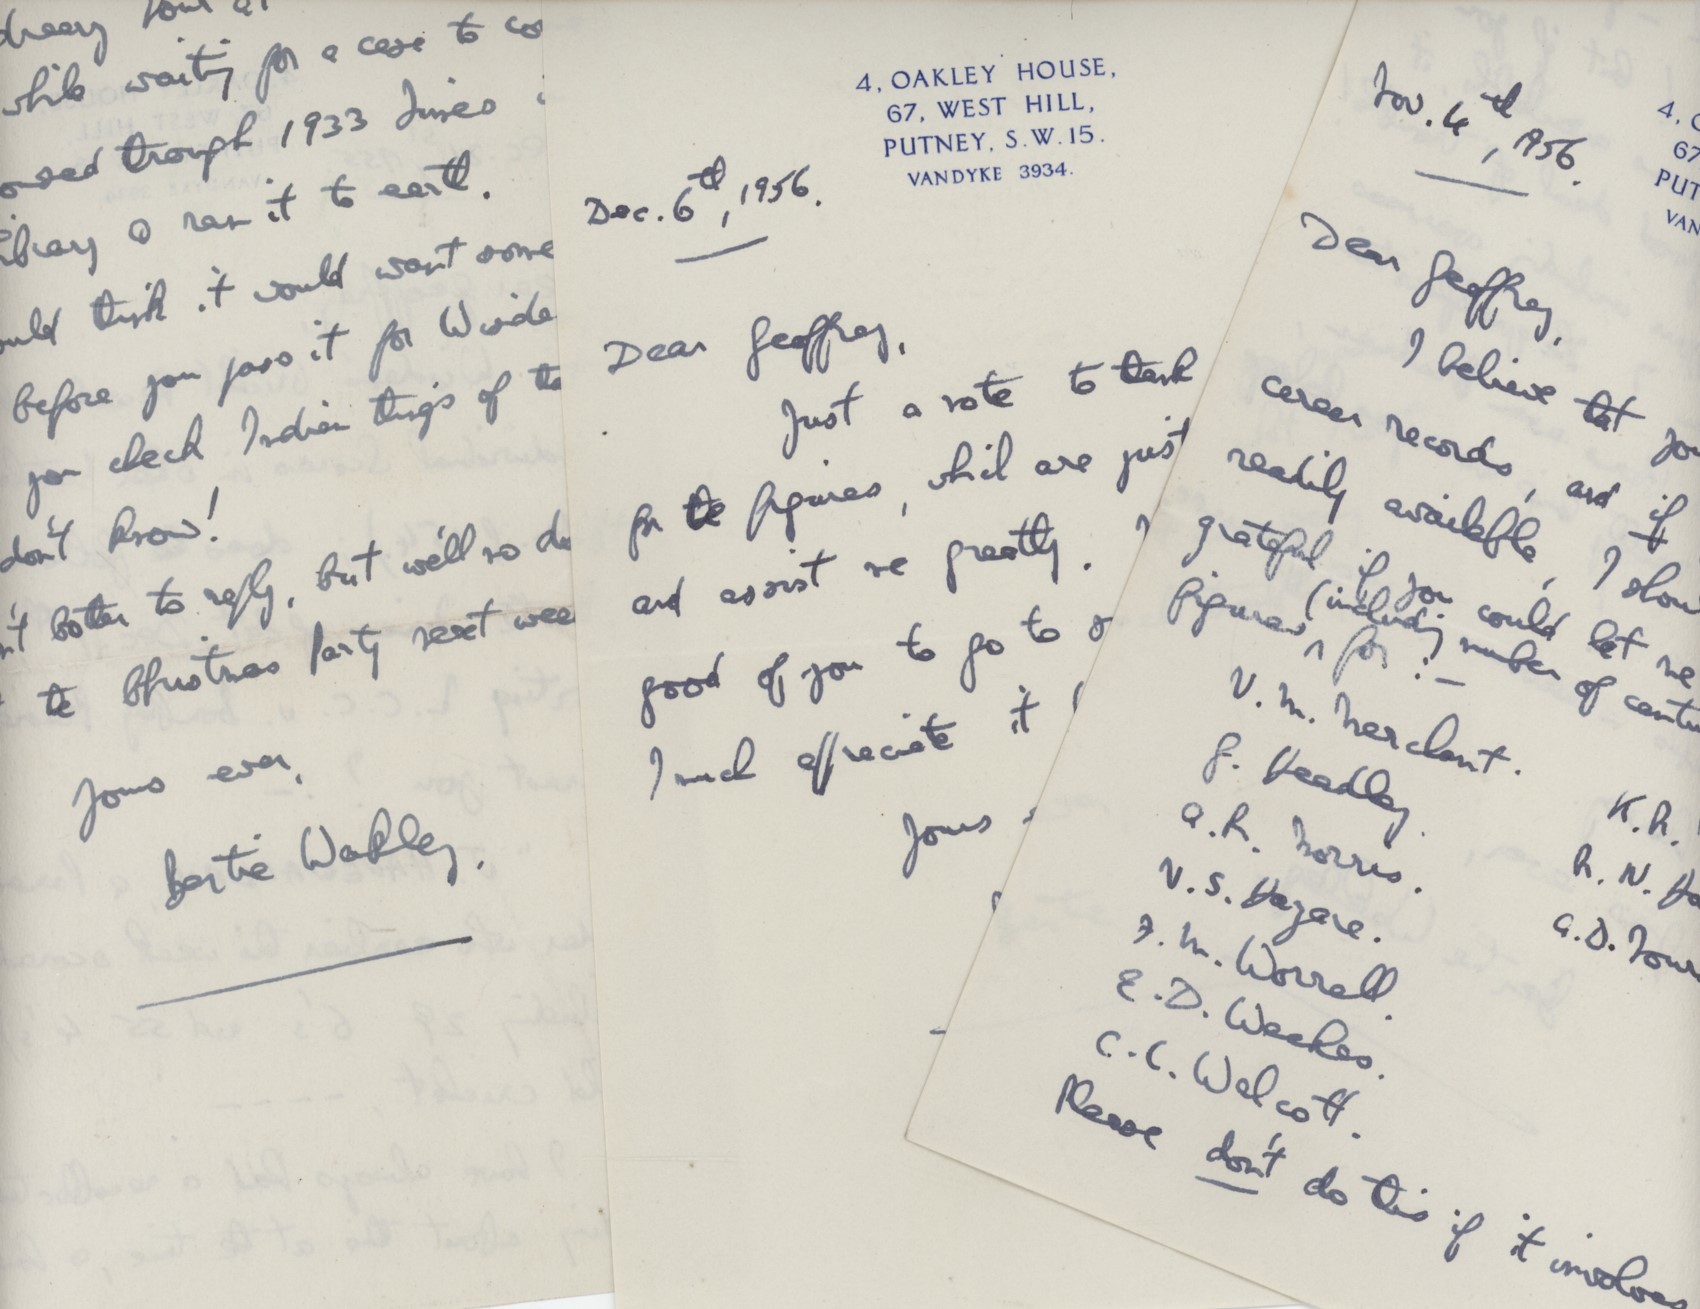 dreary
while waiting for a case to co
through 1933 Times
library & ran it to earth.
think it would want some
before you pass it for Wisde
you check Indian things of the
don't know!
bother to reply, but we'll no do
the Christmas Party next wee
Yours ever,
Bertie Wakley.
4, OAKLEY HOUSE,
67, WEST HILL,
PUTNEY, S.W.15.
VANDYKE 3934.
Dec. 6th, 1956.
Dear Geoffrey,
Just a note to thank
for the figures, which are just
and assist me greatly. I
good of you to go to s
I much appreciate it
Yours
4, O
67
PUT
VAN
Nov. 4th, 1956.
Dear Geoffrey,
I believe that you
career records, and if
readily available, I shou
grateful if you could let me
(including number of centu
figures for :—
V. M. Merchant.
G. Headley.
A. R. Morris.
V. S. Hazare.
F. M. Worrell.
E. D. Weekes.
C. L. Walcott.
K. R.
R. N. Ha
A. D. Nour
Please don't do this if it involves